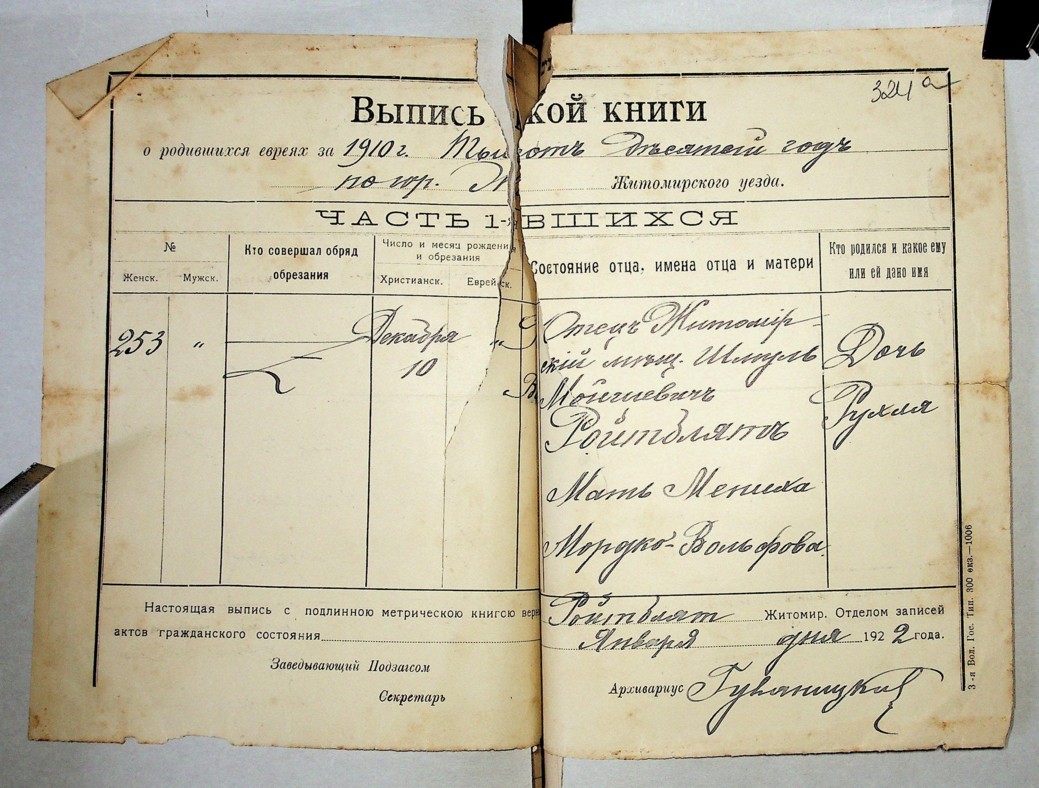 324 а
Выпись кой книги
о родившихся евреях за 1910 г. Тыс сотъ Десятый годъ
по гор. Жи Житомирского уезда.
ЧАСТЬ 1- ВШИХСЯ
№
Женск. Мужск.
Кто совершал обряд
обрезания
Число и месяц рождени
и обрезания
Христианск. Еврейск.
Состояние отца, имена отца и матери
Кто родился и какое ему
или ей дано имя
253 " Декабря 10 "
Отецъ Житомір-
скій мѣщ. Шмуль
Мошкевичъ
Ройтблятъ
Мать Мениха
Мордко-Вольфова
Дочь
Рухля
Настоящая выпись с подлинною метрическою книгою верн Ройтблят Житомир. Отделом записей
актов гражданского состояния Января дня 1922 года.
Заведывающий Подзагсом
Секретарь
Архивариус
3-я Вол. Гос. Тип. 300 экз.—1006